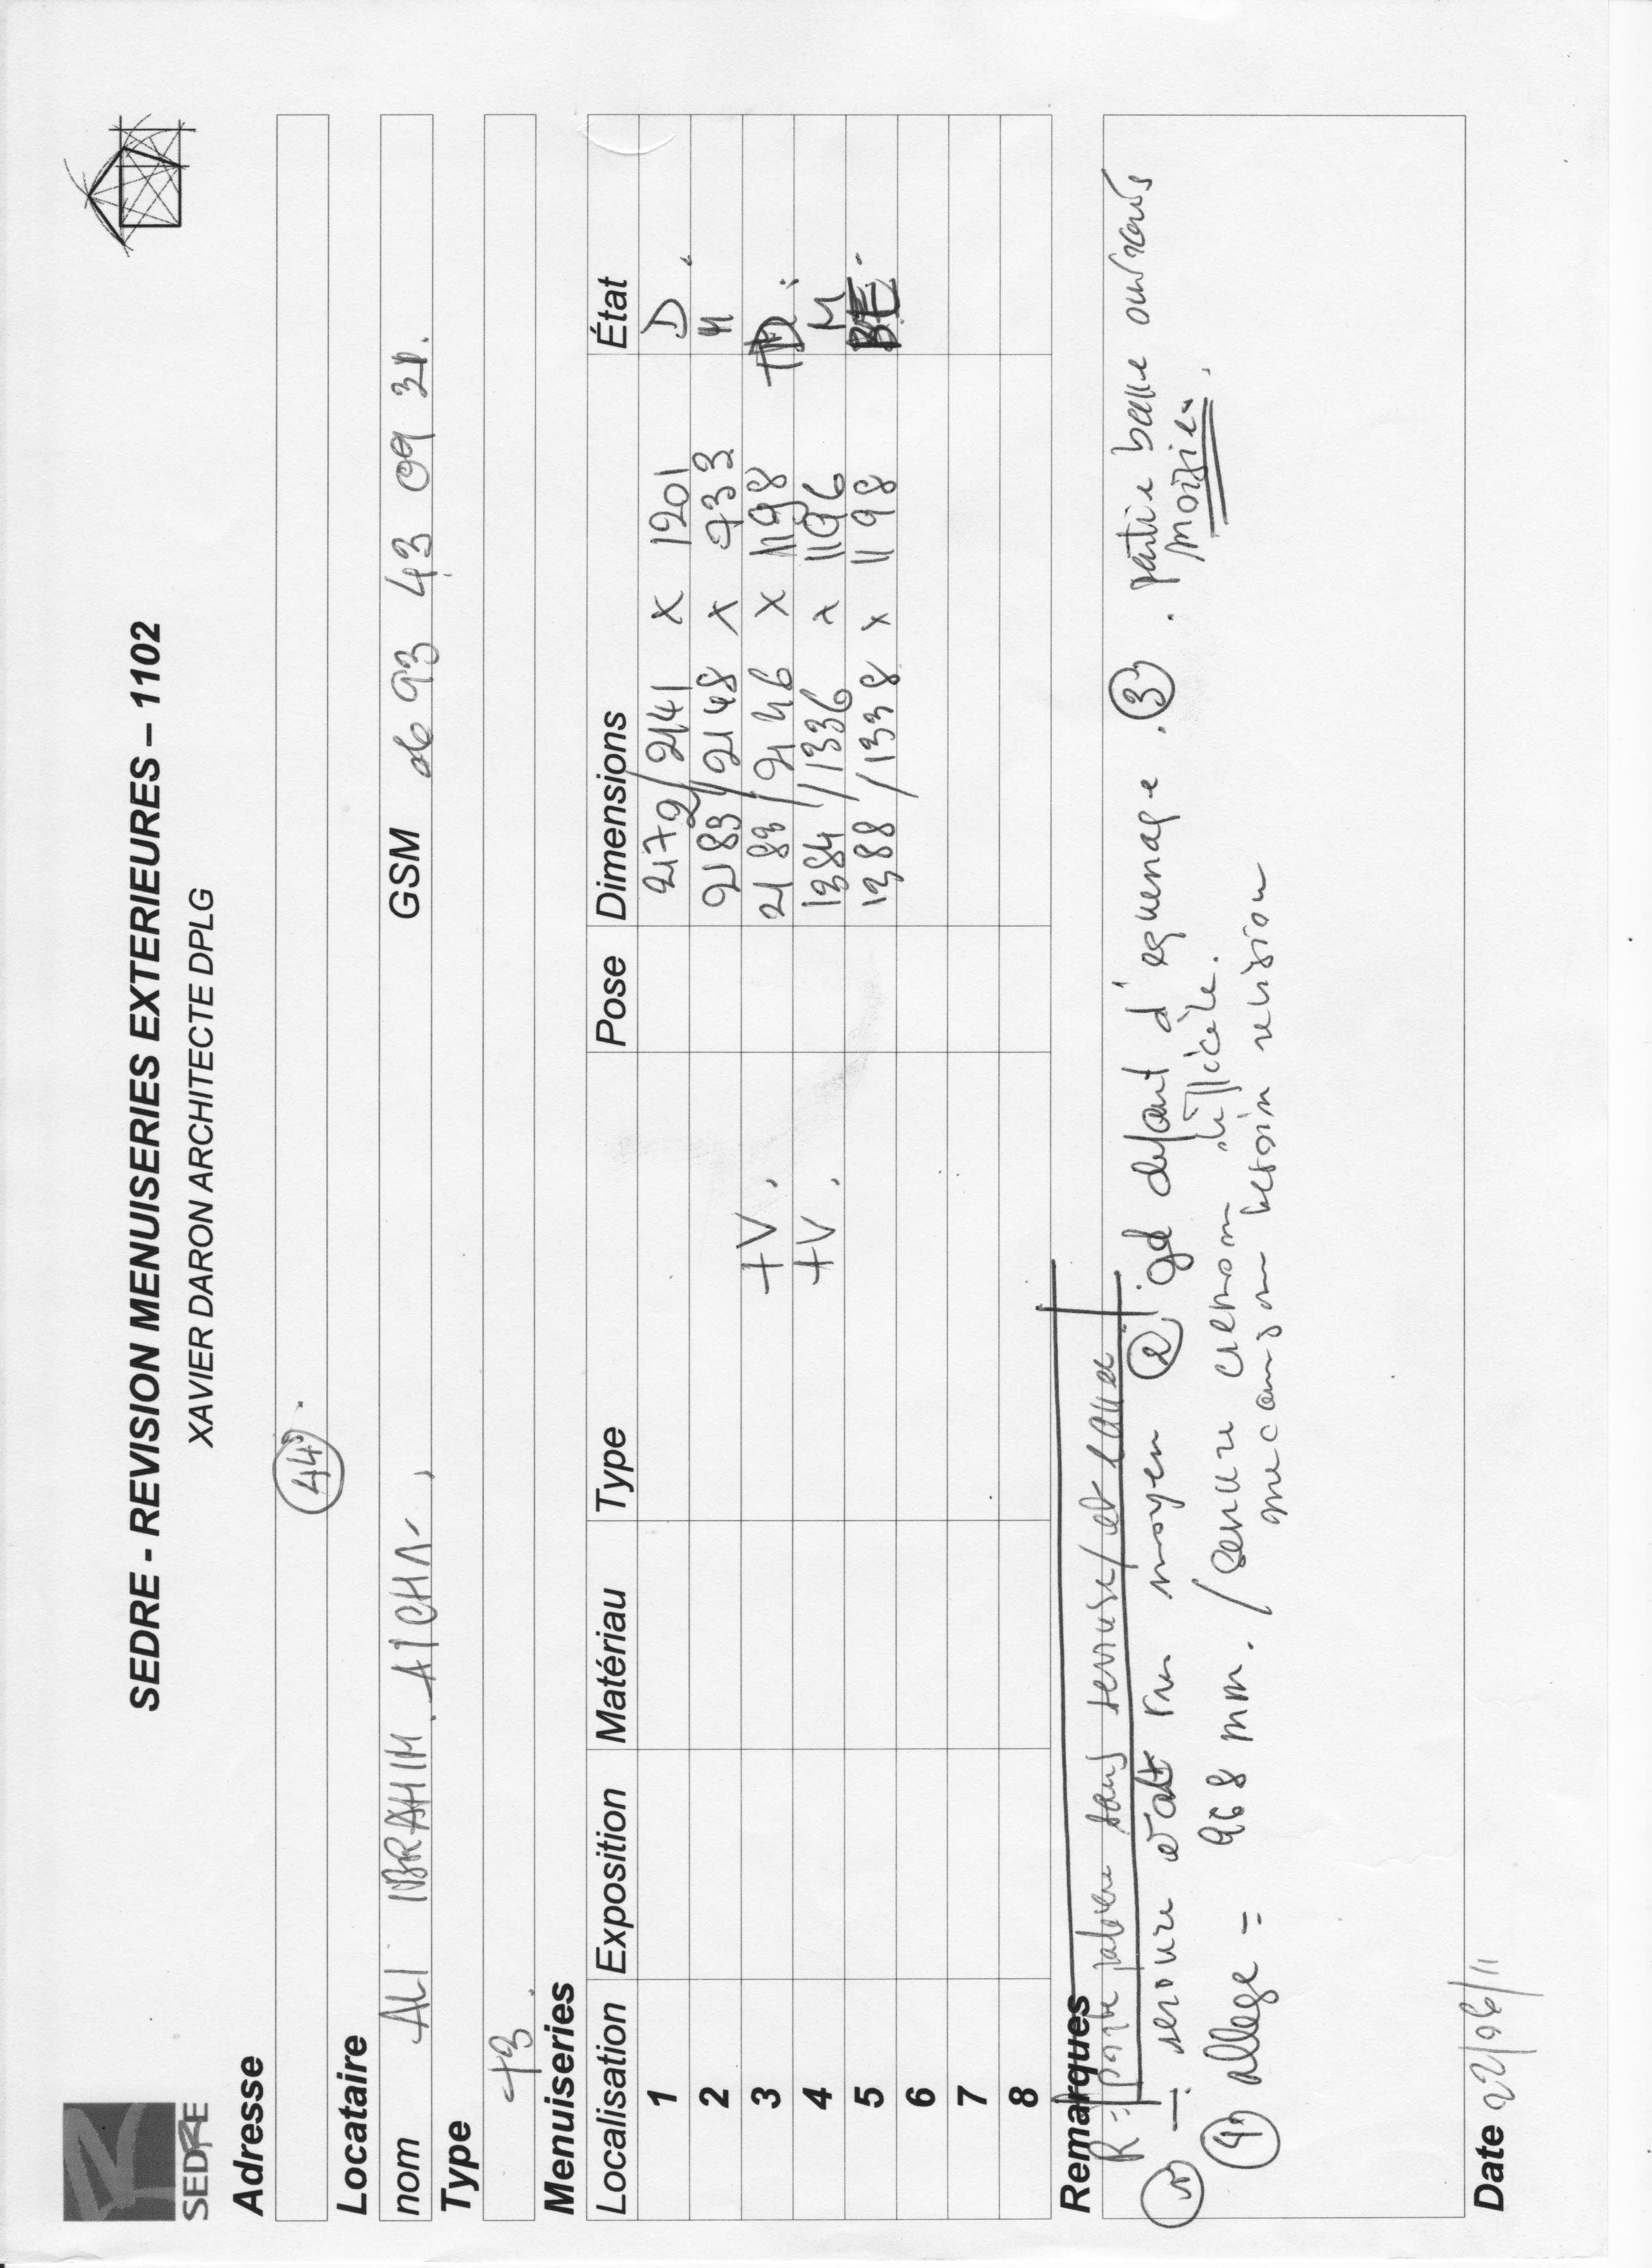 SEDRE
SEDRE - REVISION MENUISERIES EXTERIEURES – 1102
XAVIER DARON ARCHITECTE DPLG
Adresse
44
Locataire
nom ALI IBRAHIM AICHA GSM 06 93 43 09 31.
Type
T3.
Menuiseries
Localisation Exposition Matériau Type Pose Dimensions État
1 2172/2141 x 1201 D.
2 2183/2148 x 933 "
3 +V. 2183/2146 x 1198 TD.
4 +V. 1384/1336 x 1196 M
5 1388/1338 x 1198 BE.
6
7
8
Remarques
R = porte sans serrure/et
serrure état moyen 2 gd défaut d'équerrage. 3. partie basse ouvrants
moisie.
4 allège = 968 mm. / serrure difficile.
mécanisme besoin révision
Date 22/06/11